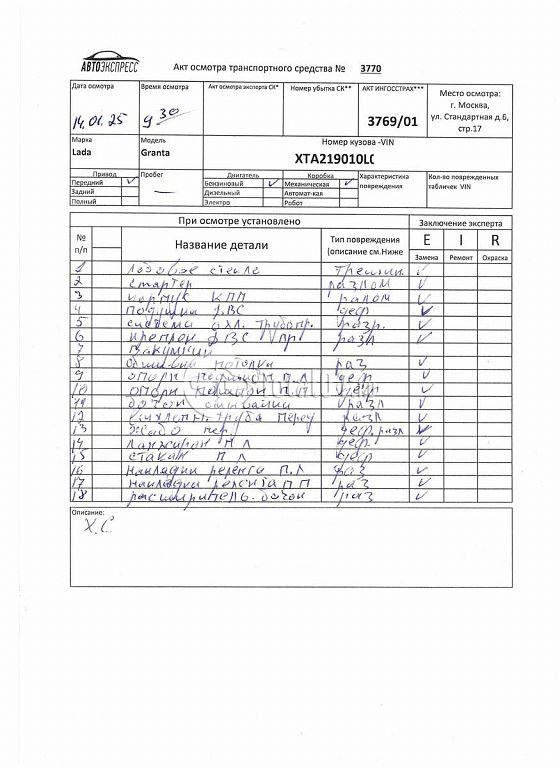 АВТОЭКСПРЕСС
Акт осмотра транспортного средства № 3770
Дата осмотра
14.01.25
Время осмотра
9 30
Акт осмотра эксперта СК*
Номер убытка СК**
АКТ ИНГОССТРАХ***
3769/01
Место осмотра:
г. Москва,
ул. Стандартная д.6,
стр.17
Марка
Lada
Модель
Granta
Номер кузова -VIN
XTA219010L
Привод
Передний
Задний
Полный
Пробег
—
Двигатель
Бензиновый
Дизельный
Электро
Коробка
Механическая
Автомат-кая
Робот
Характеристика
повреждения
Кол-во поврежденных
табличек VIN
При осмотре установлено
Заключение эксперта
№
п/п
Название детали
Тип повреждения
(описание см.Ниже
E I R
Замена Ремонт Окраска
1 Лобовое стекло
2 стартер разлом
3 КПП
4 Подушка ДВС деф
5 система охл. разр.
6 ДВС разл
7
8 обшивка потолка раз
9 П.Л деф
10 П.П деф
бачок разл
12 труба перед разл
13 пер. деф. разл
14 Лонжерон П Л деф
15 стакан П Л деф
16 накладка П.Л раз
17 накладка П П раз
18 расширитель. бачок раз
Описание:
Х.С.